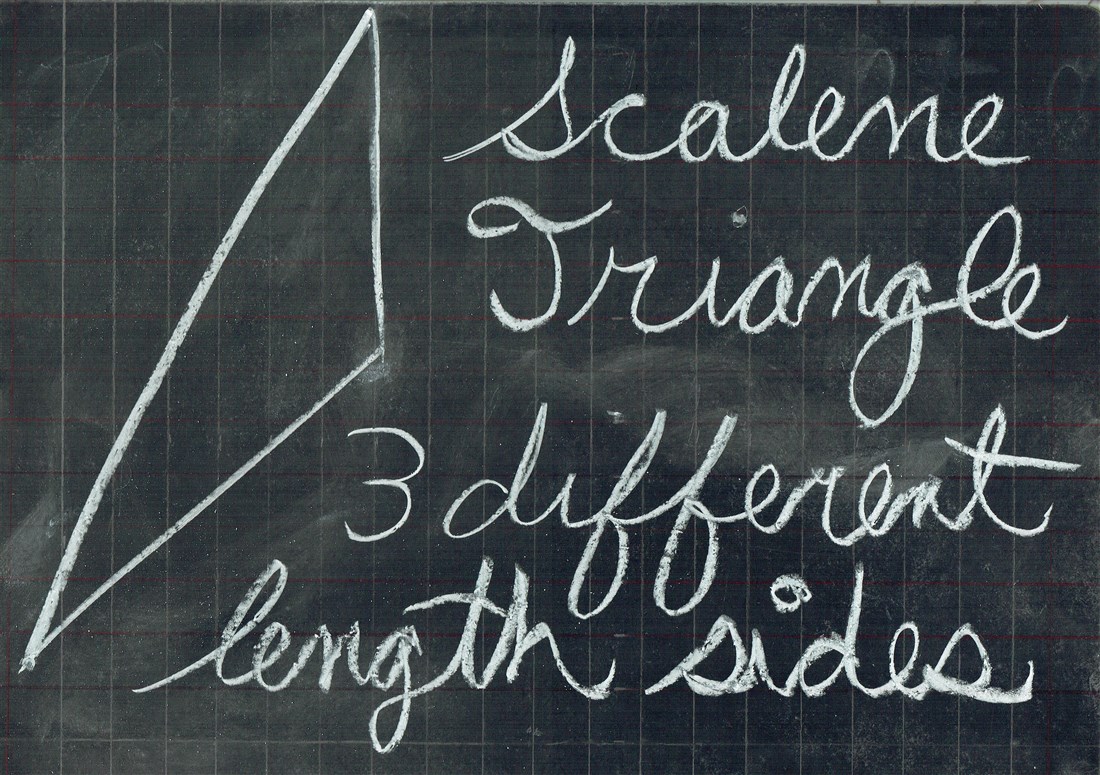 Scalene
Triangle
3 different
length sides